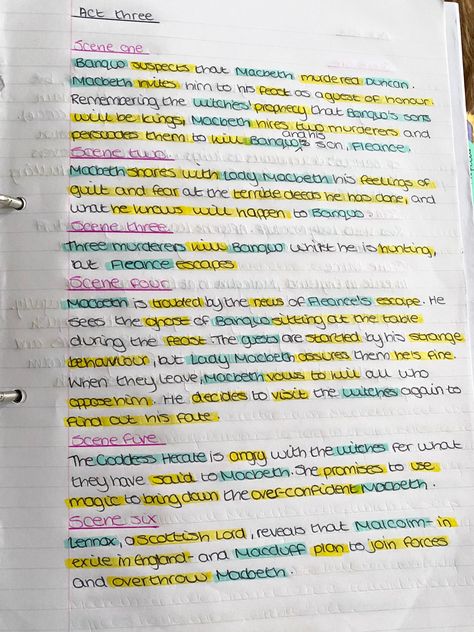 Act three
Scene one
Banquo suspects that Macbeth murdered Duncan.
Macbeth invites him to his feast as a guest of honour.
Remembering the witches' prophecy that Banquo's sons
will be kings, Macbeth hires two murderers and
and his
persuades them to kill Banquo's son, Fleance.
Scene two
Macbeth shares with Lady Macbeth his feelings of
guilt and fear at the terrible deeds he has done, and
what he knows will happen to Banquo.
Scene three
Three murderers kill Banquo whilst he is hunting,
but Fleance escapes
Scene four
Macbeth is troubled by the news of Fleance's escape. He
sees the ghost of Banquo sitting at the table
during the feast. The guests are startled by his strange
behaviour, but Lady Macbeth assures them he's fine.
When they leave, Macbeth vows to kill all who
oppose him. He decides to visit the witches again to
find out his fate.
Scene five
The Goddess Hecate is angry with the witches for what
they have said to Macbeth. She promises to use
magic to bring down the over-confident Macbeth.
Scene six
Lennox, a scottish Lord, reveals that Malcolm - in
exile in England - and Macduff plan to join forces
and overthrow Macbeth.